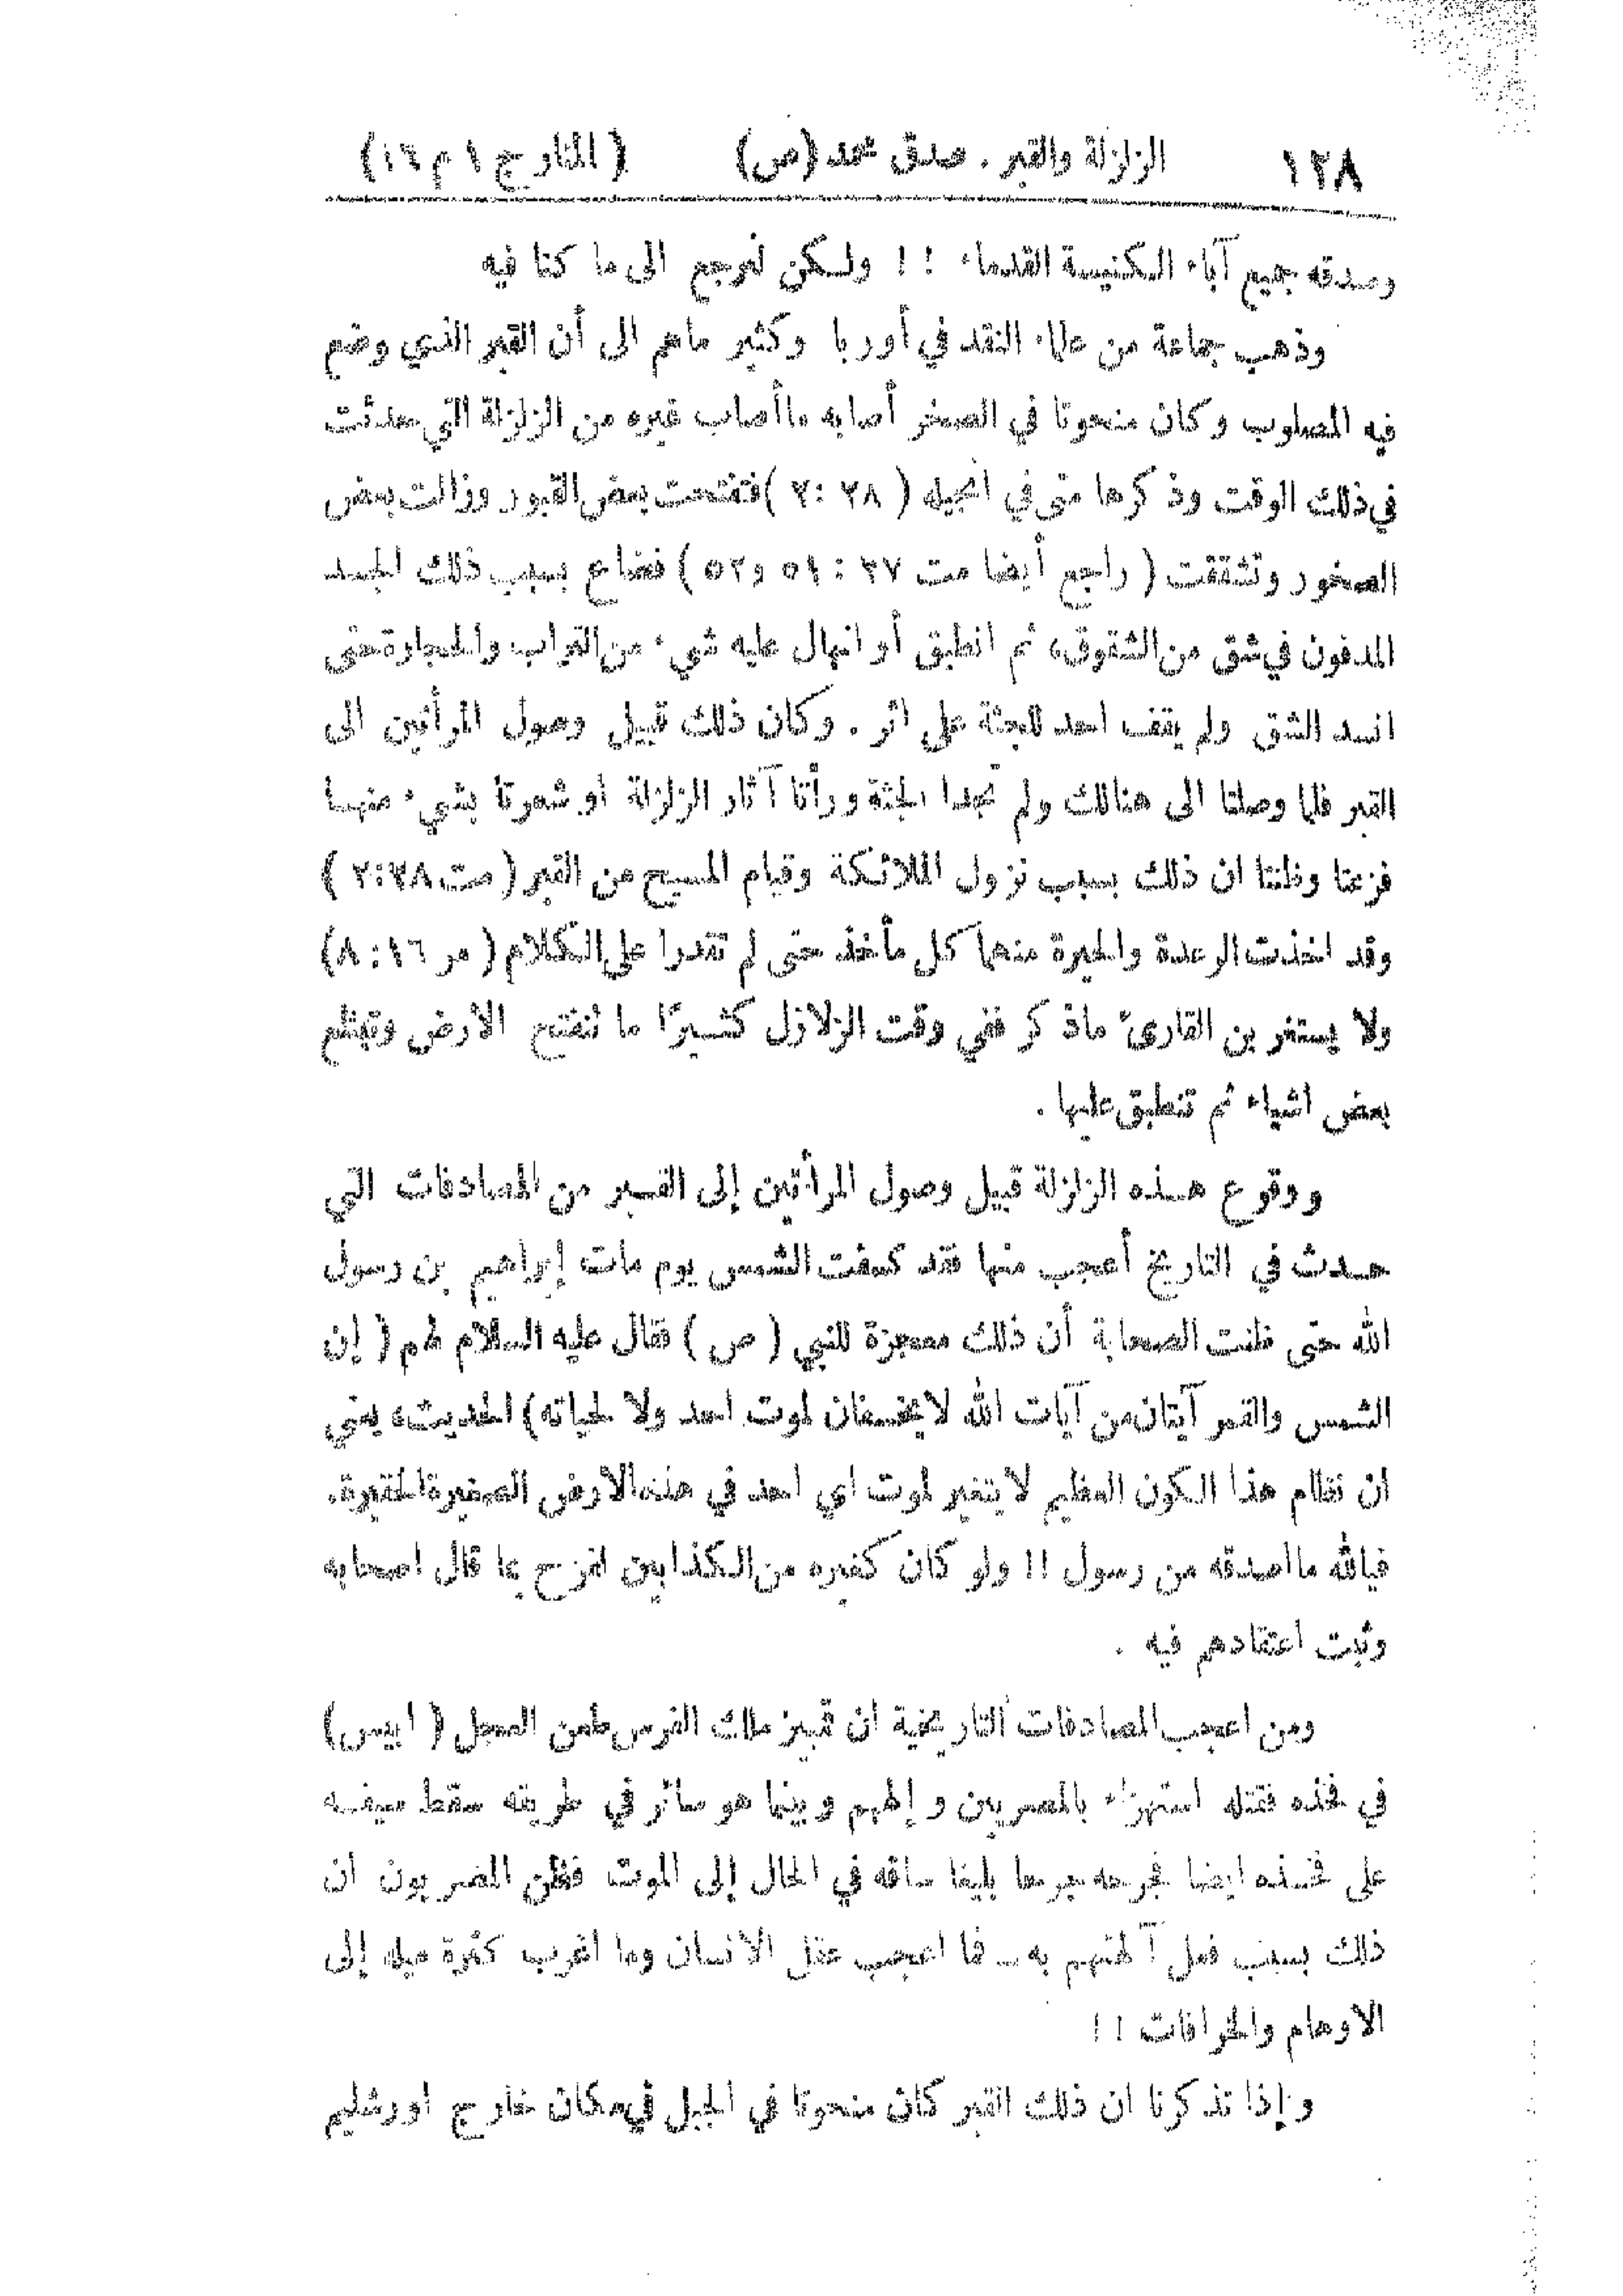 ١٢٨ الزلزلة والقبر . صدق محمد (ص) (المنار ج ١ م ١٦)
وصدقه جميع آباء الكنيسة القدماء !! ولكن لنرجع الى ما كنا فيه
وذهب جماعة من علماء النقد في أوربا وكثير ماهم الى أن القبر الذي وضع
فيه المصلوب وكان منحوتا في الصخر أصابه ما أصاب غيره من الزلزلة التي حدثت
في ذلك الوقت وذكرها متى في انجيله ( ٢٨ : ٢ ) فتفتحت بعض القبور وزالت بعض
الصخور وتشققت ( راجع أيضا مت ٢٧ : ٥١ و٥٢ ) فضاع بسبب ذلك الجسد
المدفون في شق من الشقوق، ثم انطبق أو انهال عليه شيء من التراب والحجارة حتى
انسد الشق ولم يقف احد للجثة على اثر . وكان ذلك قبيل وصول المرأتين الى
القبر فلما وصلتا الى هنالك ولم تجدا الجثة ورأتا آثار الزلزلة او شعرتا بشيء منها
فزعتا وظنتا ان ذلك بسبب نزول الملائكة وقيام المسيح من القبر (مت ٢٨:٢ )
وقد اخذت الرعدة والحيرة منهما كل مأخذ حتى لم تقدرا على الكلام ( مر ١٦ : ٨)
ولا يستغربن القارئ ماذكر ففي وقت الزلازل كثيرًا ما تنفتح الأرض وتبتلع
بعض اشياء ثم تنطبق عليها .
ووقوع هذه الزلزلة قبيل وصول المرأتين إلى القبر من المصادفات التي
حدث في التاريخ أعجب منها فقد كسفت الشمس يوم مات إبراهيم بن رسول
الله حتى ظنت الصحابة أن ذلك معجزة للنبي ( ص ) فقال عليه السلام لهم ( إن
الشمس والقمر آيتان من آيات الله لا يخسفان لموت احد ولا لحياته) الحديث، يعني
ان نظام هذا الكون العظيم لا يتغير لموت اي احد في هذه الارض الصغيرة الحقيرة.
فيالله ما اصدقه من رسول !! ولو كان كغيره من الكذابين لفرح بما قال اصحابه
وثبت اعتقادهم فيه .
ومن اعجب المصادفات التاريخية ان قمبيز ملك الفرس طعن العجل ( ابيس)
في فخذه فقتله استهزاء بالمصريين وإلههم وبينما هو سائر في طريقه سقط سيفه
على فخذه ايضا فجرحه جرحا بليغا ساقه في الحال إلى الموت فظن المصريون ان
ذلك بسبب فعل آلهتهم به ــ فما اعجب عقل الانسان وما اغرب كثرة ميله إلى
الاوهام والخرافات !!
وإذا تذكرنا ان ذلك القبر كان منحوتا في الجبل في مكان خارج اورشليم